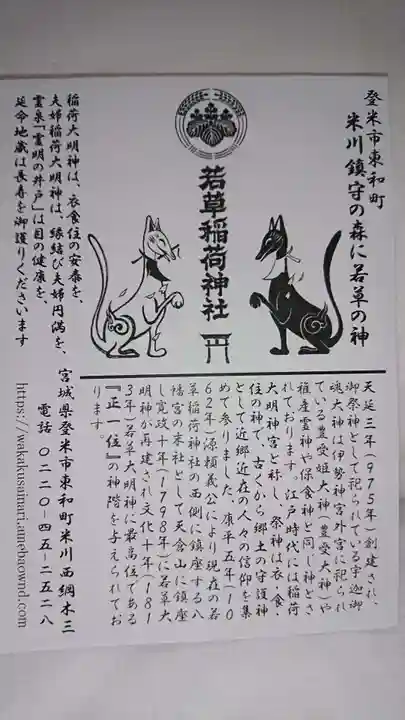 登米市東和町
米川鎮守の森に若草の神
若草稲荷神社
天延三年(975年)創建され、
御祭神として祀られている宇迦御
魂大神は伊勢神宮外宮に祀られ
ている豊受姫大神(豊受大神)や
稚産霊神や保食神と同じ神とさ
れております。江戸時代には稲荷
大明神宮と称し、祭神は衣・食・
住の神で、古くから郷土の守護神
として近郷近在の人々の信仰を集
めて参りました。康平五年(10
62年)源頼義公により現在の若
草稲荷神社の西側に鎮座する八
幡宮の末社として天倉山に鎮座
し寛政十年(1798年)に若草大
明神が再建され文化十年(181
3年)若草大明神に最高位である
『正一位』の神階を与えられてお
ります。
稲荷大明神は、衣食住の安泰を、
夫婦稲荷大明神は、縁結び夫婦円満を、
霊泉「霊明の井戸」は目の健康を、
延命地蔵は長寿を御護りくださいます
宮城県登米市東和町米川西綱木三
電話 〇二二〇-四五-二五二八
https://wakakusainari.amebaownd.com